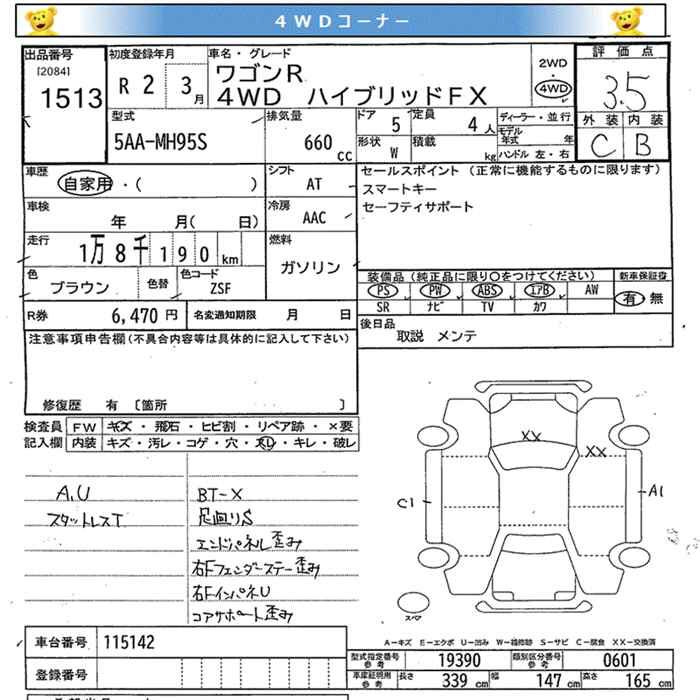 4WDコーナー
出品番号
[2084]
1513
初度登録年月
R 2 3 月
車名・グレード
ワゴンR
4WD ハイブリッドFX
2WD
・
4WD
評価点
3.5
外装 内装
C B
型式
5AA-MH95S
排気量
660 cc
ドア 5
定員 4 人
形状 W
積載 kg
ディーラー・並行
モデル年式 年
ハンドル 左・右
車歴
自家用・( )
シフト
AT
車検
年 月( 日)
冷房
AAC
走行
1万8千190 km
燃料
ガソリン
色
ブラウン
色替
色コード
ZSF
R券 6,470 円
名変通知期限 月 日
セールスポイント (正常に機能するものに限ります)
スマートキー
セーフティサポート
装備品(純正品に限り○をつけてください)
新車保証書
PS PW ABS エアB AW
有・無
SR ナビ TV カワ
後日品
取説 メンテ
注意事項申告欄(不具合内容等は具体的に記入して下さい)
修復歴 有 〔箇所 〕
検査員記入欄
FW キズ・飛石・ヒビ割・リペア跡・×要
内装 キズ・汚レ・コゲ・穴・スレ・キレ・破レ
A,U
スタットレスT
BT-X
足廻りS
エンドパネル歪み
右Fフェンダーステー歪み
右FインパネU
コアサポート歪み
XX
XX
C1
A1
スペア
A-キズ E-エクボ U-凹み W-補修跡 S-サビ C-腐食 XX-交換済
車台番号 115142
登録番号
型式指定番号 参考 19390
類別区分番号 参考 0601
車庫証明用 参考 長さ 339 cm 幅 147 cm 高さ 165 cm